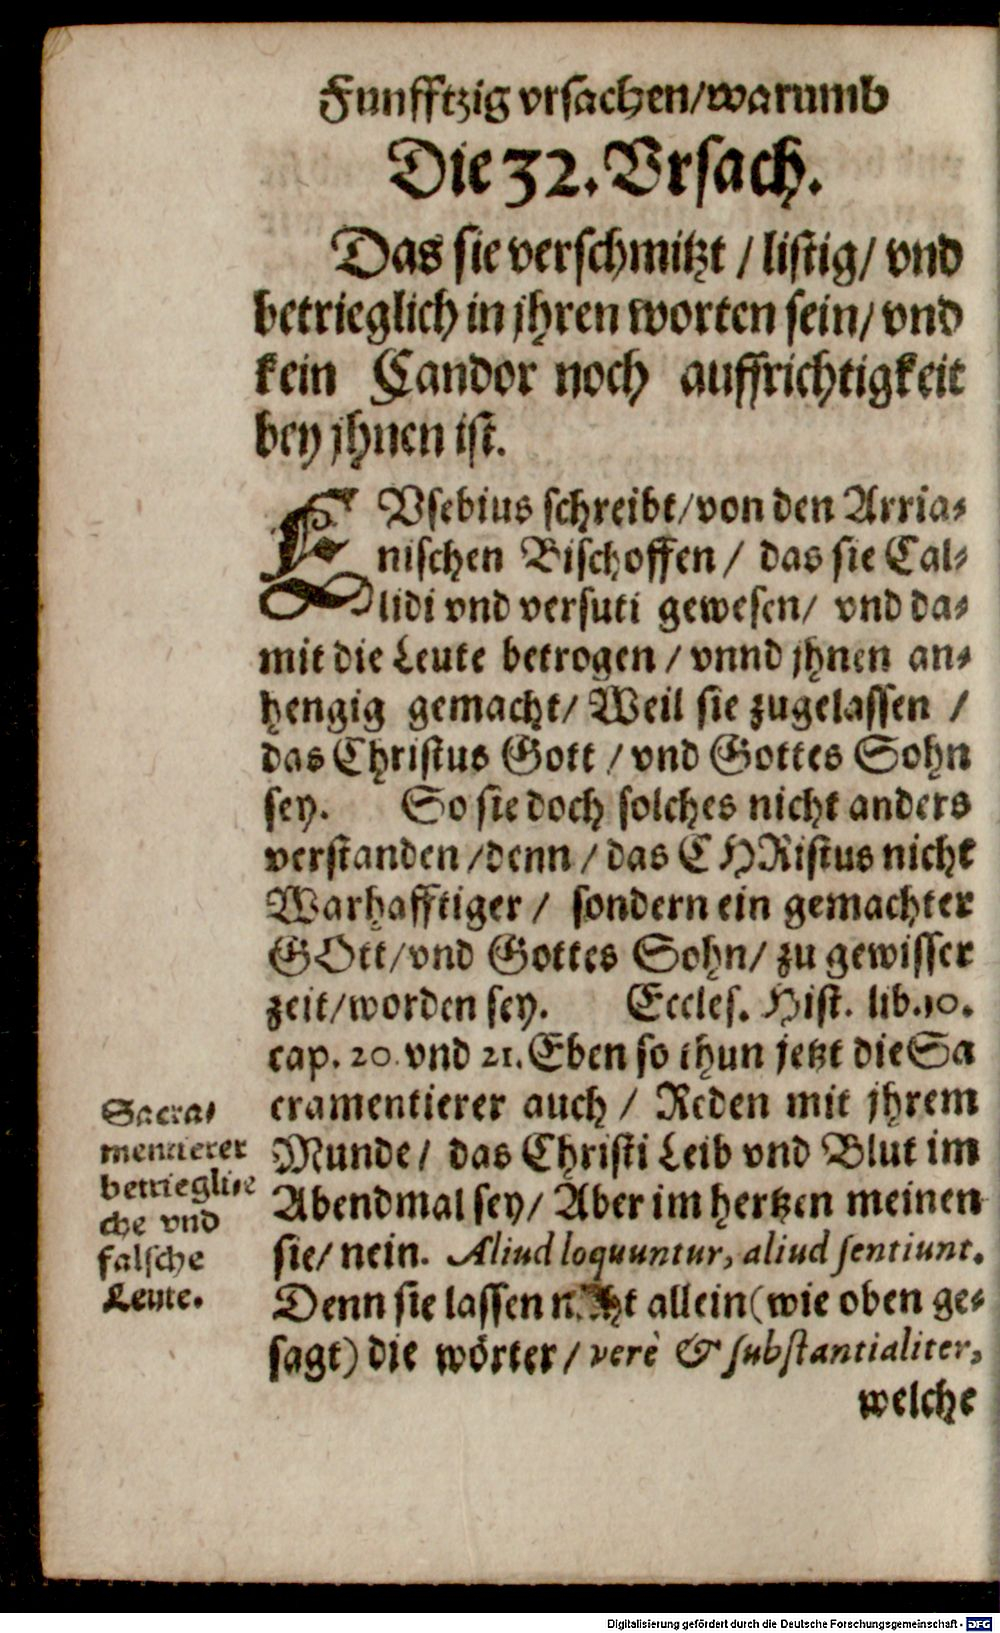 Funfftzig vrsachen/warumb
Die 32. Vrsach.
Das sie verschmitzt / listig/ vnd
betrieglich in jhren worten sein/ vnd
kein Candor noch auffrichtigkeit
bey jhnen ist.
EVsebius schreibt/von den Arria-
nischen Bischoffen / das sie Cal-
lidi vnd versuti gewesen/ vnd da-
mit die Leute betrogen / vnnd jhnen an-
hengig gemacht/ Weil sie zugelassen /
das Christus Gott / vnd Gottes Sohn
sey. So sie doch solches nicht anders
verstanden /denn / das CHRistus nicht
Warhafftiger / sondern ein gemachter
GOtt/vnd Gottes Sohn/ zu gewisser
zeit/worden sey. Eccles. Hist. lib.10.
cap. 20. vnd 21. Eben so thun jetzt die Sa
cramentierer auch / Reden mit jhrem
Munde/ das Christi Leib vnd Blut im
Abendmal sey/ Aber im hertzen meinen
sie/ nein. Aliud loquuntur, aliud sentiunt.
Denn sie lassen nicht allein (wie oben ge-
sagt) die wörter / verè & substantialiter,
welche
Sacra-
mentierer
betriegli-
che vnd
falsche
Leute.
Digitalisierung gefördert durch die Deutsche Forschungsgemeinschaft - DFG